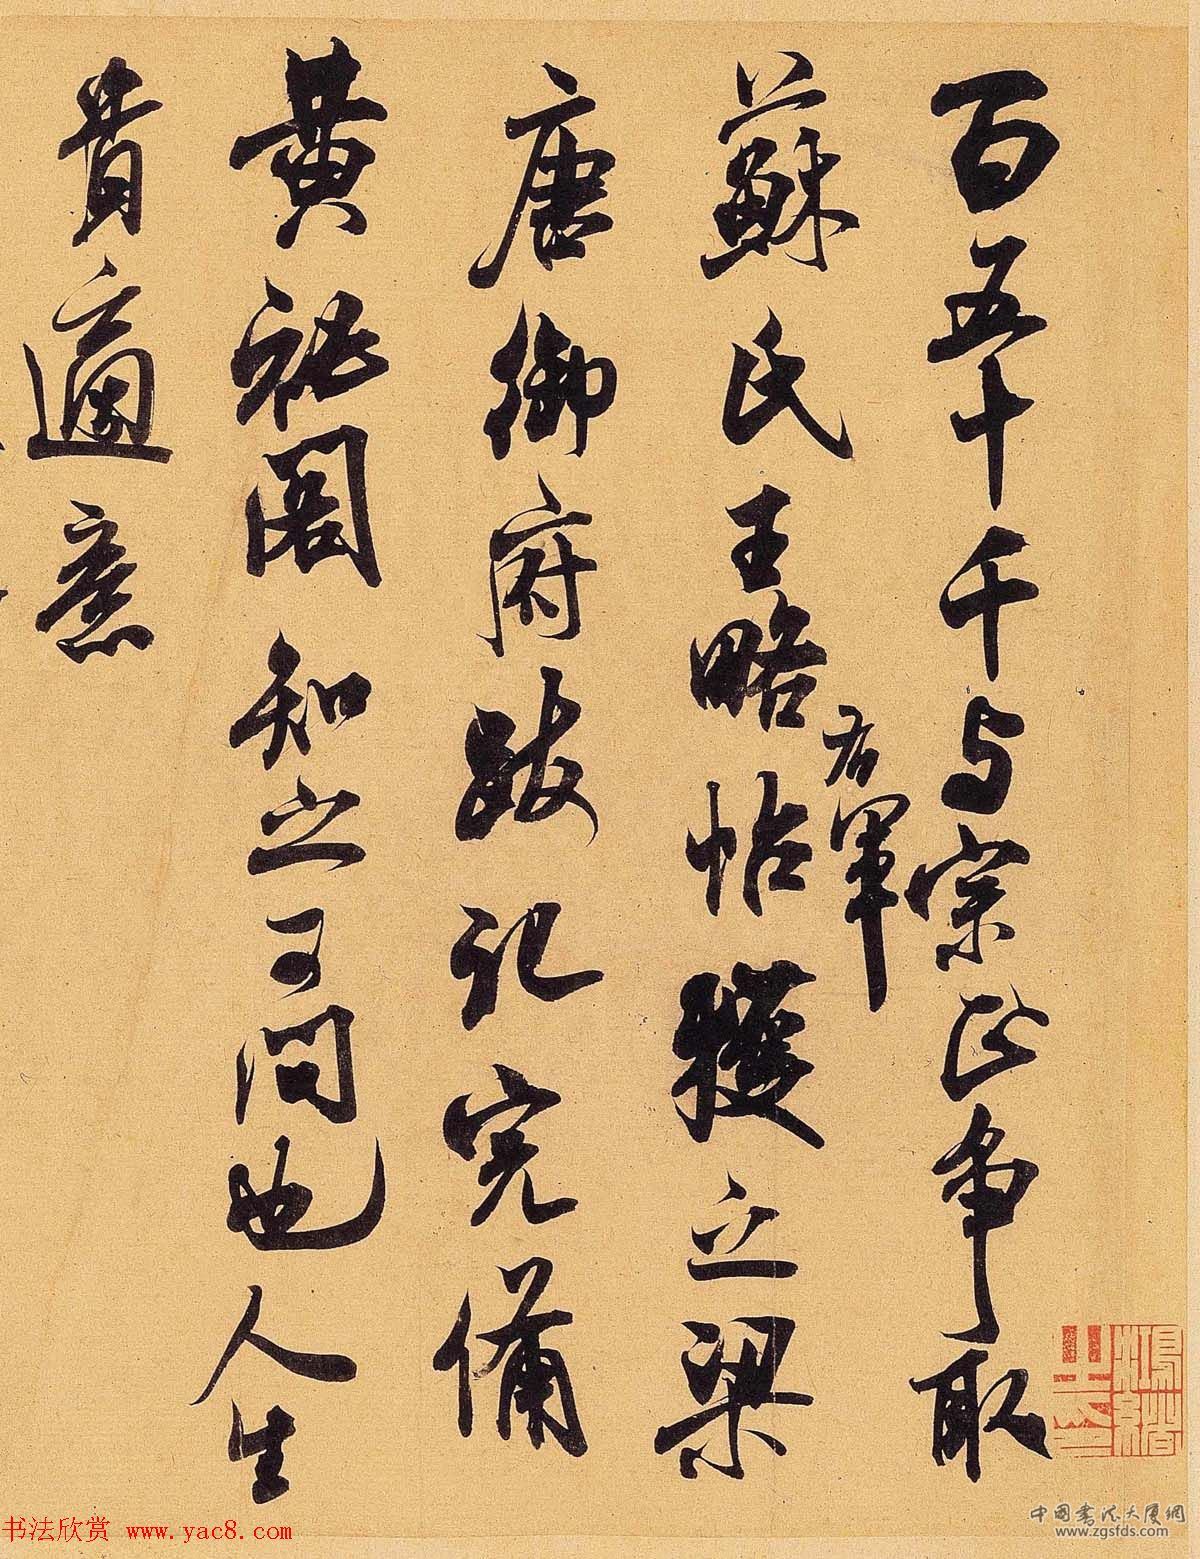 百五十千与宗正爭取
蘇氏王略帖右軍獲之梁
唐御府跋記完備
黃祕閣知之可問也人生
貴適意
书法欣赏 www.yac8.com
中国書法大厦網
www.zgsfds.com